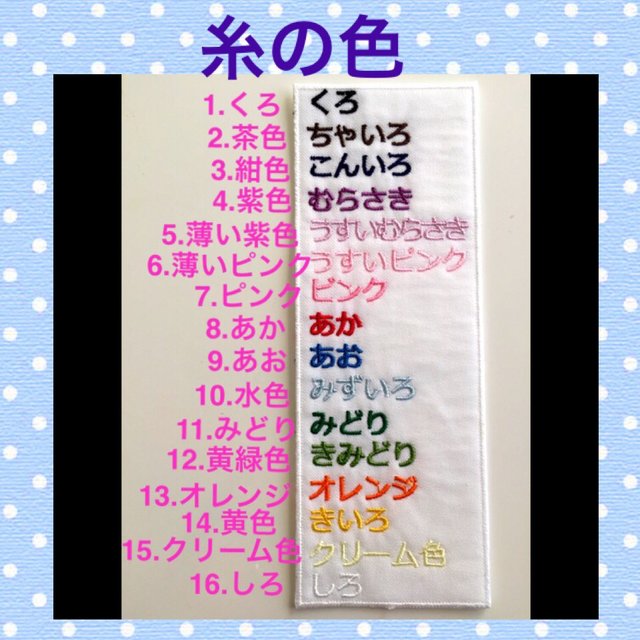 糸の色
1.くろ くろ
2.茶色 ちゃいろ
3.紺色 こんいろ
4.紫色 むらさき
5.薄い紫色 うすいむらさき
6.薄いピンク うすいピンク
7.ピンク ピンク
8.あか あか
9.あお あお
10.水色 みずいろ
11.みどり みどり
12.黄緑色 きみどり
13.オレンジ オレンジ
14.黄色 きいろ
15.クリーム色 クリーム色
16.しろ しろ